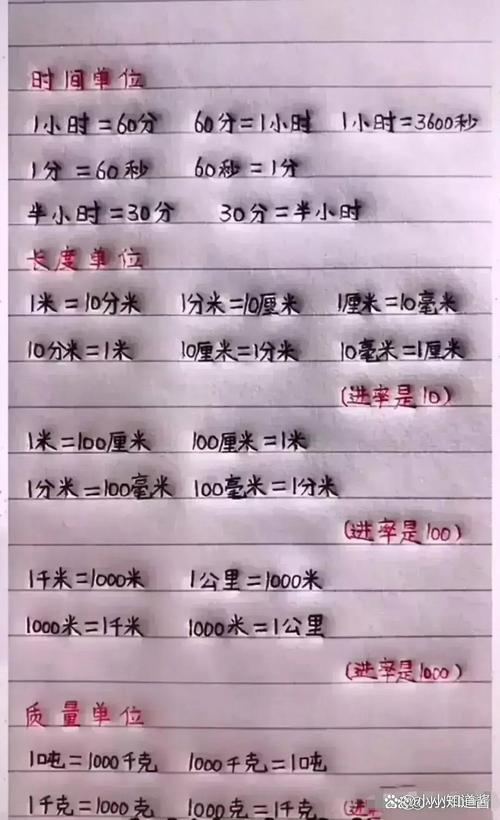 时间单位
1小时=60分 60分=1小时 1小时=3600秒
1分=60秒 60秒=1分
半小时=30分 30分=半小时
长度单位
1米=10分米 1分米=10厘米 1厘米=10毫米
10分米=1米 10厘米=1分米 10毫米=1厘米
(进率是10)
1米=100厘米 100厘米=1米
1分米=100毫米 100毫米=1分米
(进率是100)
1千米=1000米 1公里=1000米
1000米=1千米 1000米=1公里
(进率是1000)
质量单位
1吨=1000千克 1000千克=1吨
1千克=1000克 1000克=1千克 (进率
小小知道酱